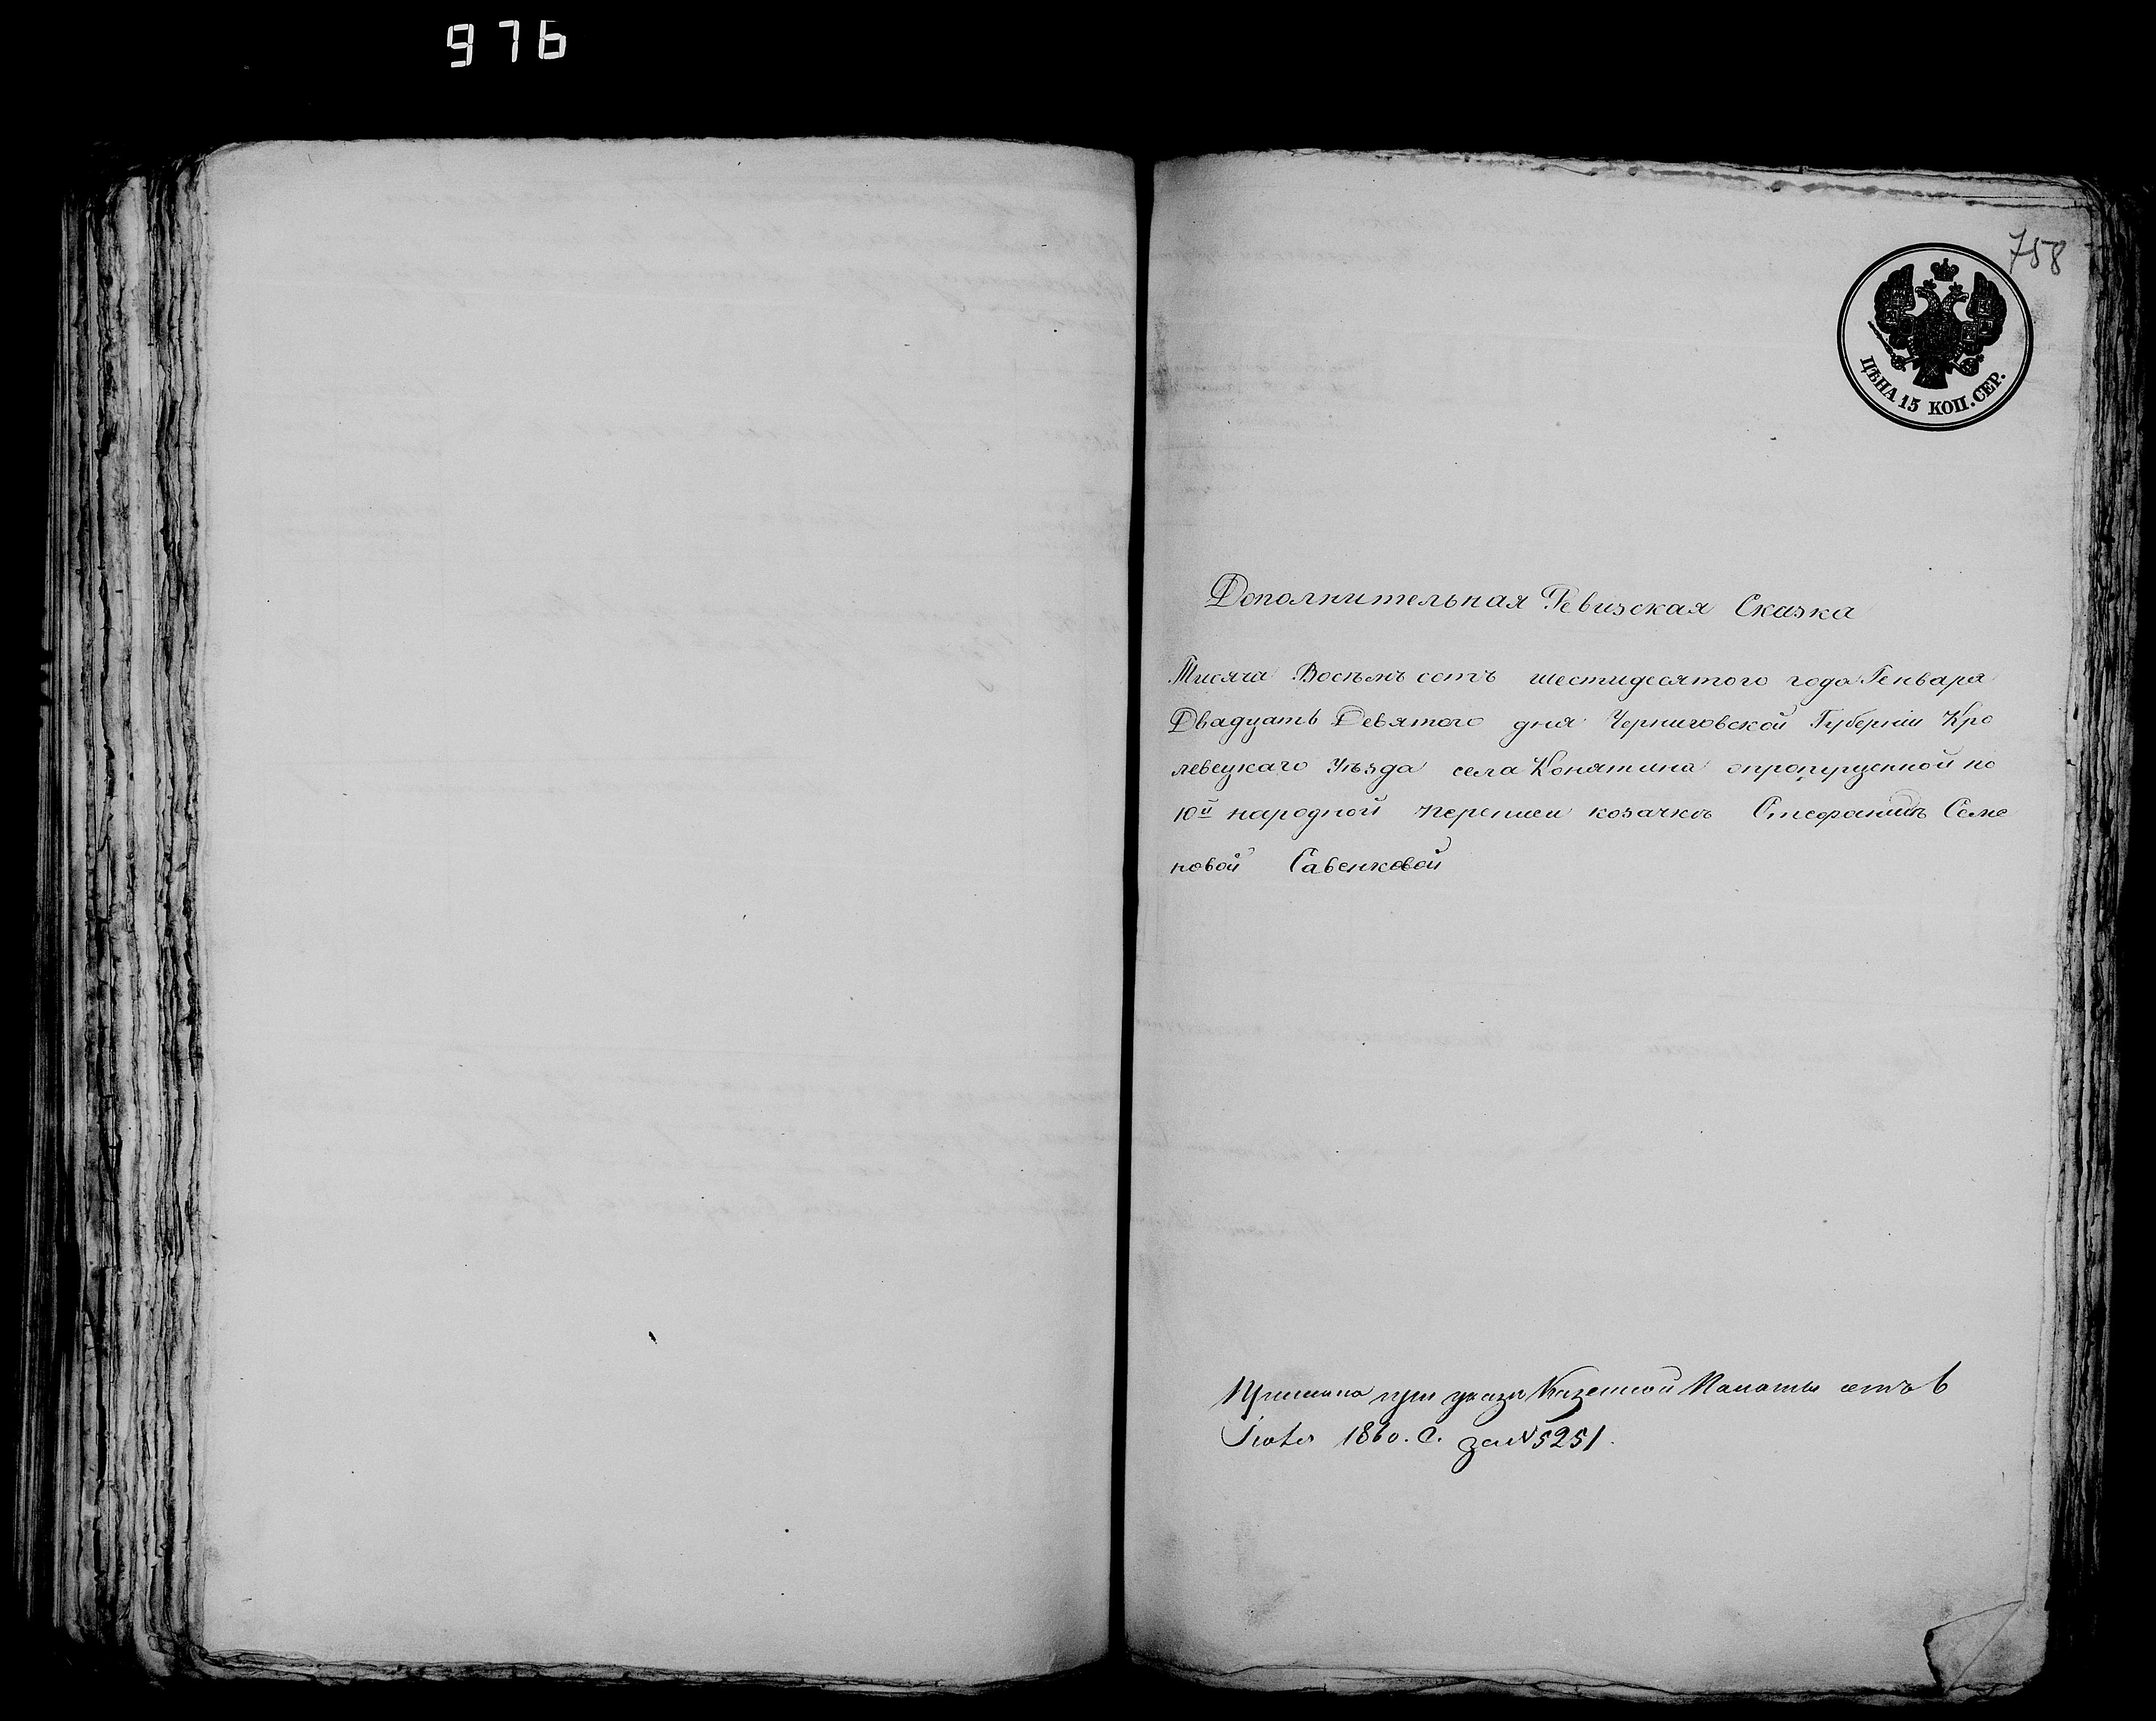 976
758
ЦѢНА 15 КОП. СЕР.
Дополнительная Ревизская Сказка
Тисяча Восемъ сотъ шестидесятого года Генваря
Двадцать Девятого дня Черниговской Губерніи Кро
левецкаго Уѣзда села Конятина опропущенной по
10й народной переписи козачкѣ Стефанидѣ Семе
новой Савенковой
При указѣ Казенной Палаты отъ 6
1860. г. за № 5251.